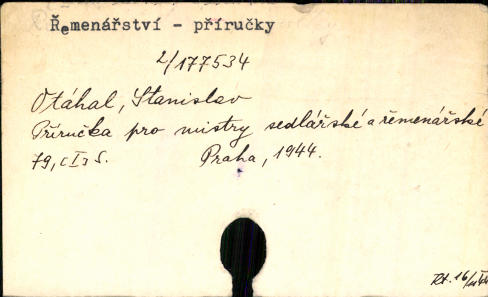 Řemenářství - příručky
2/177534
Otáhal, Stanislav
Příručka pro mistry sedlářské a řemenářské
79, S.
Praha, 1944.